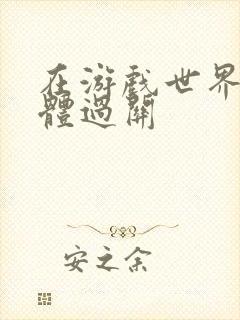 在游戲世界
體過關
安之余